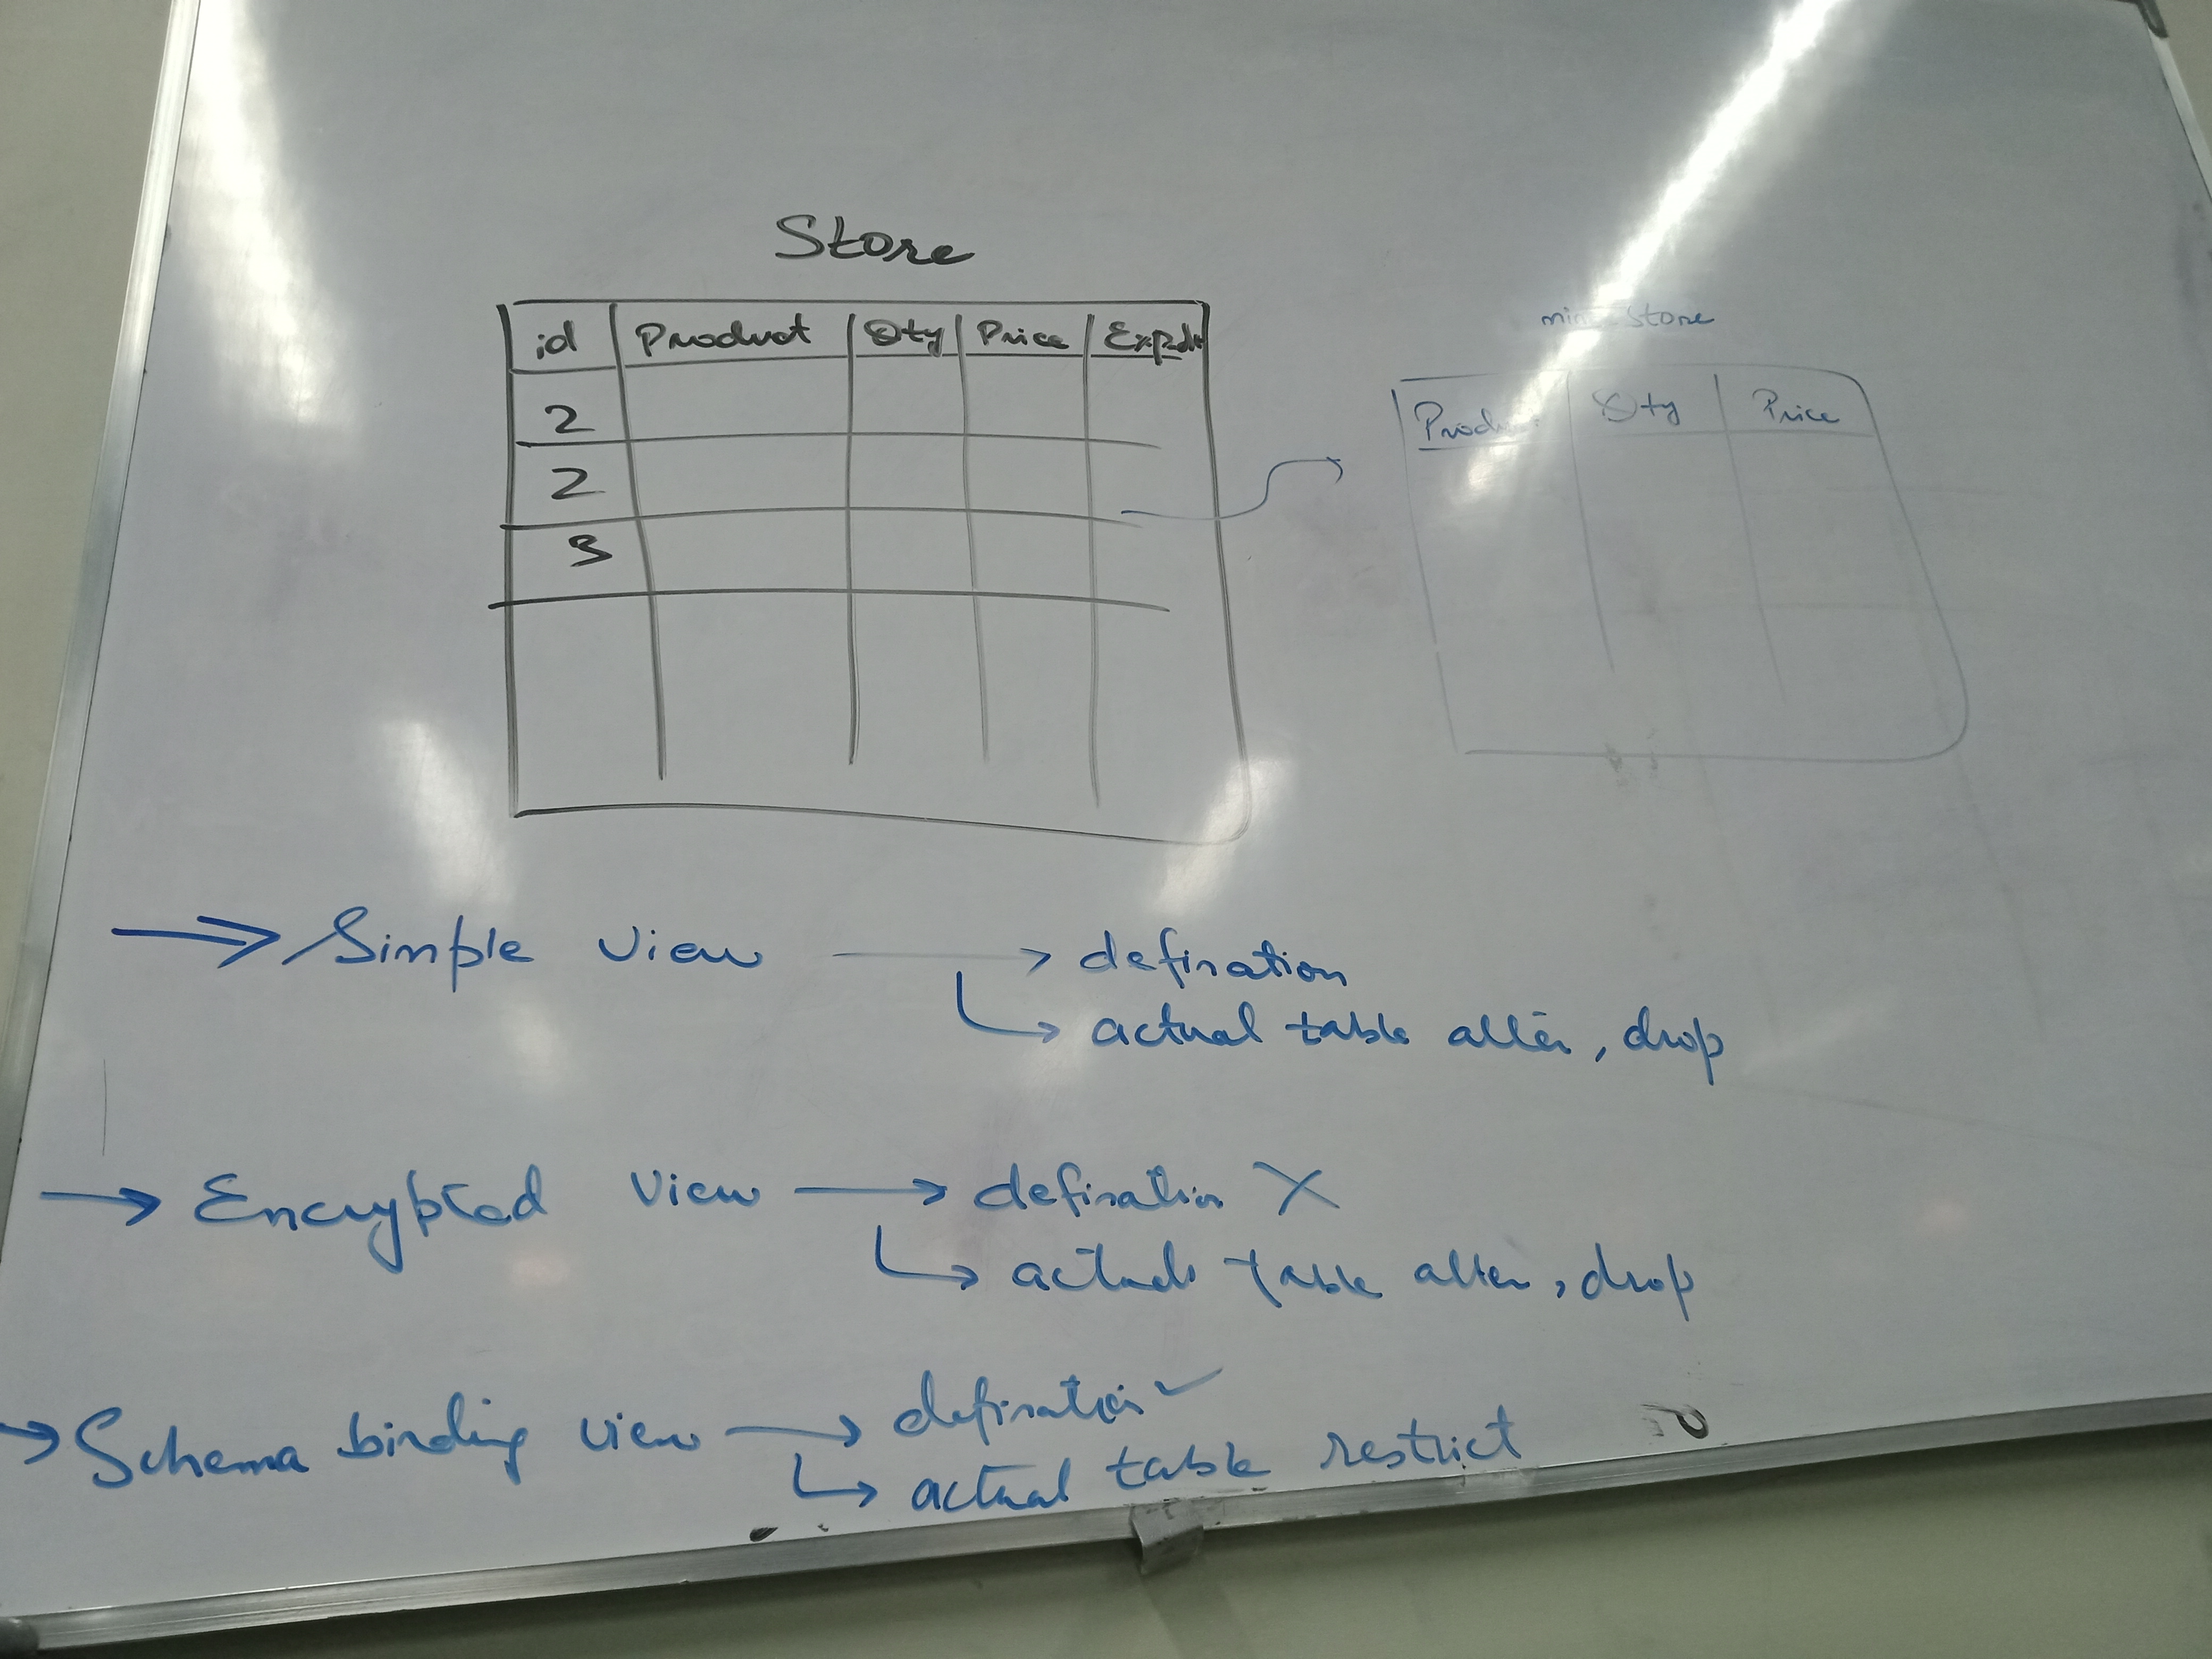 Store
id Product Qty Price
2
2
3
store
Qty Price
Simple view → defination
↳ actual table alter, drop
→ Encrypted view → defination X
↳ actual table alter, drop
→ Schema binding view → defination ✓
↳ actual table restrict